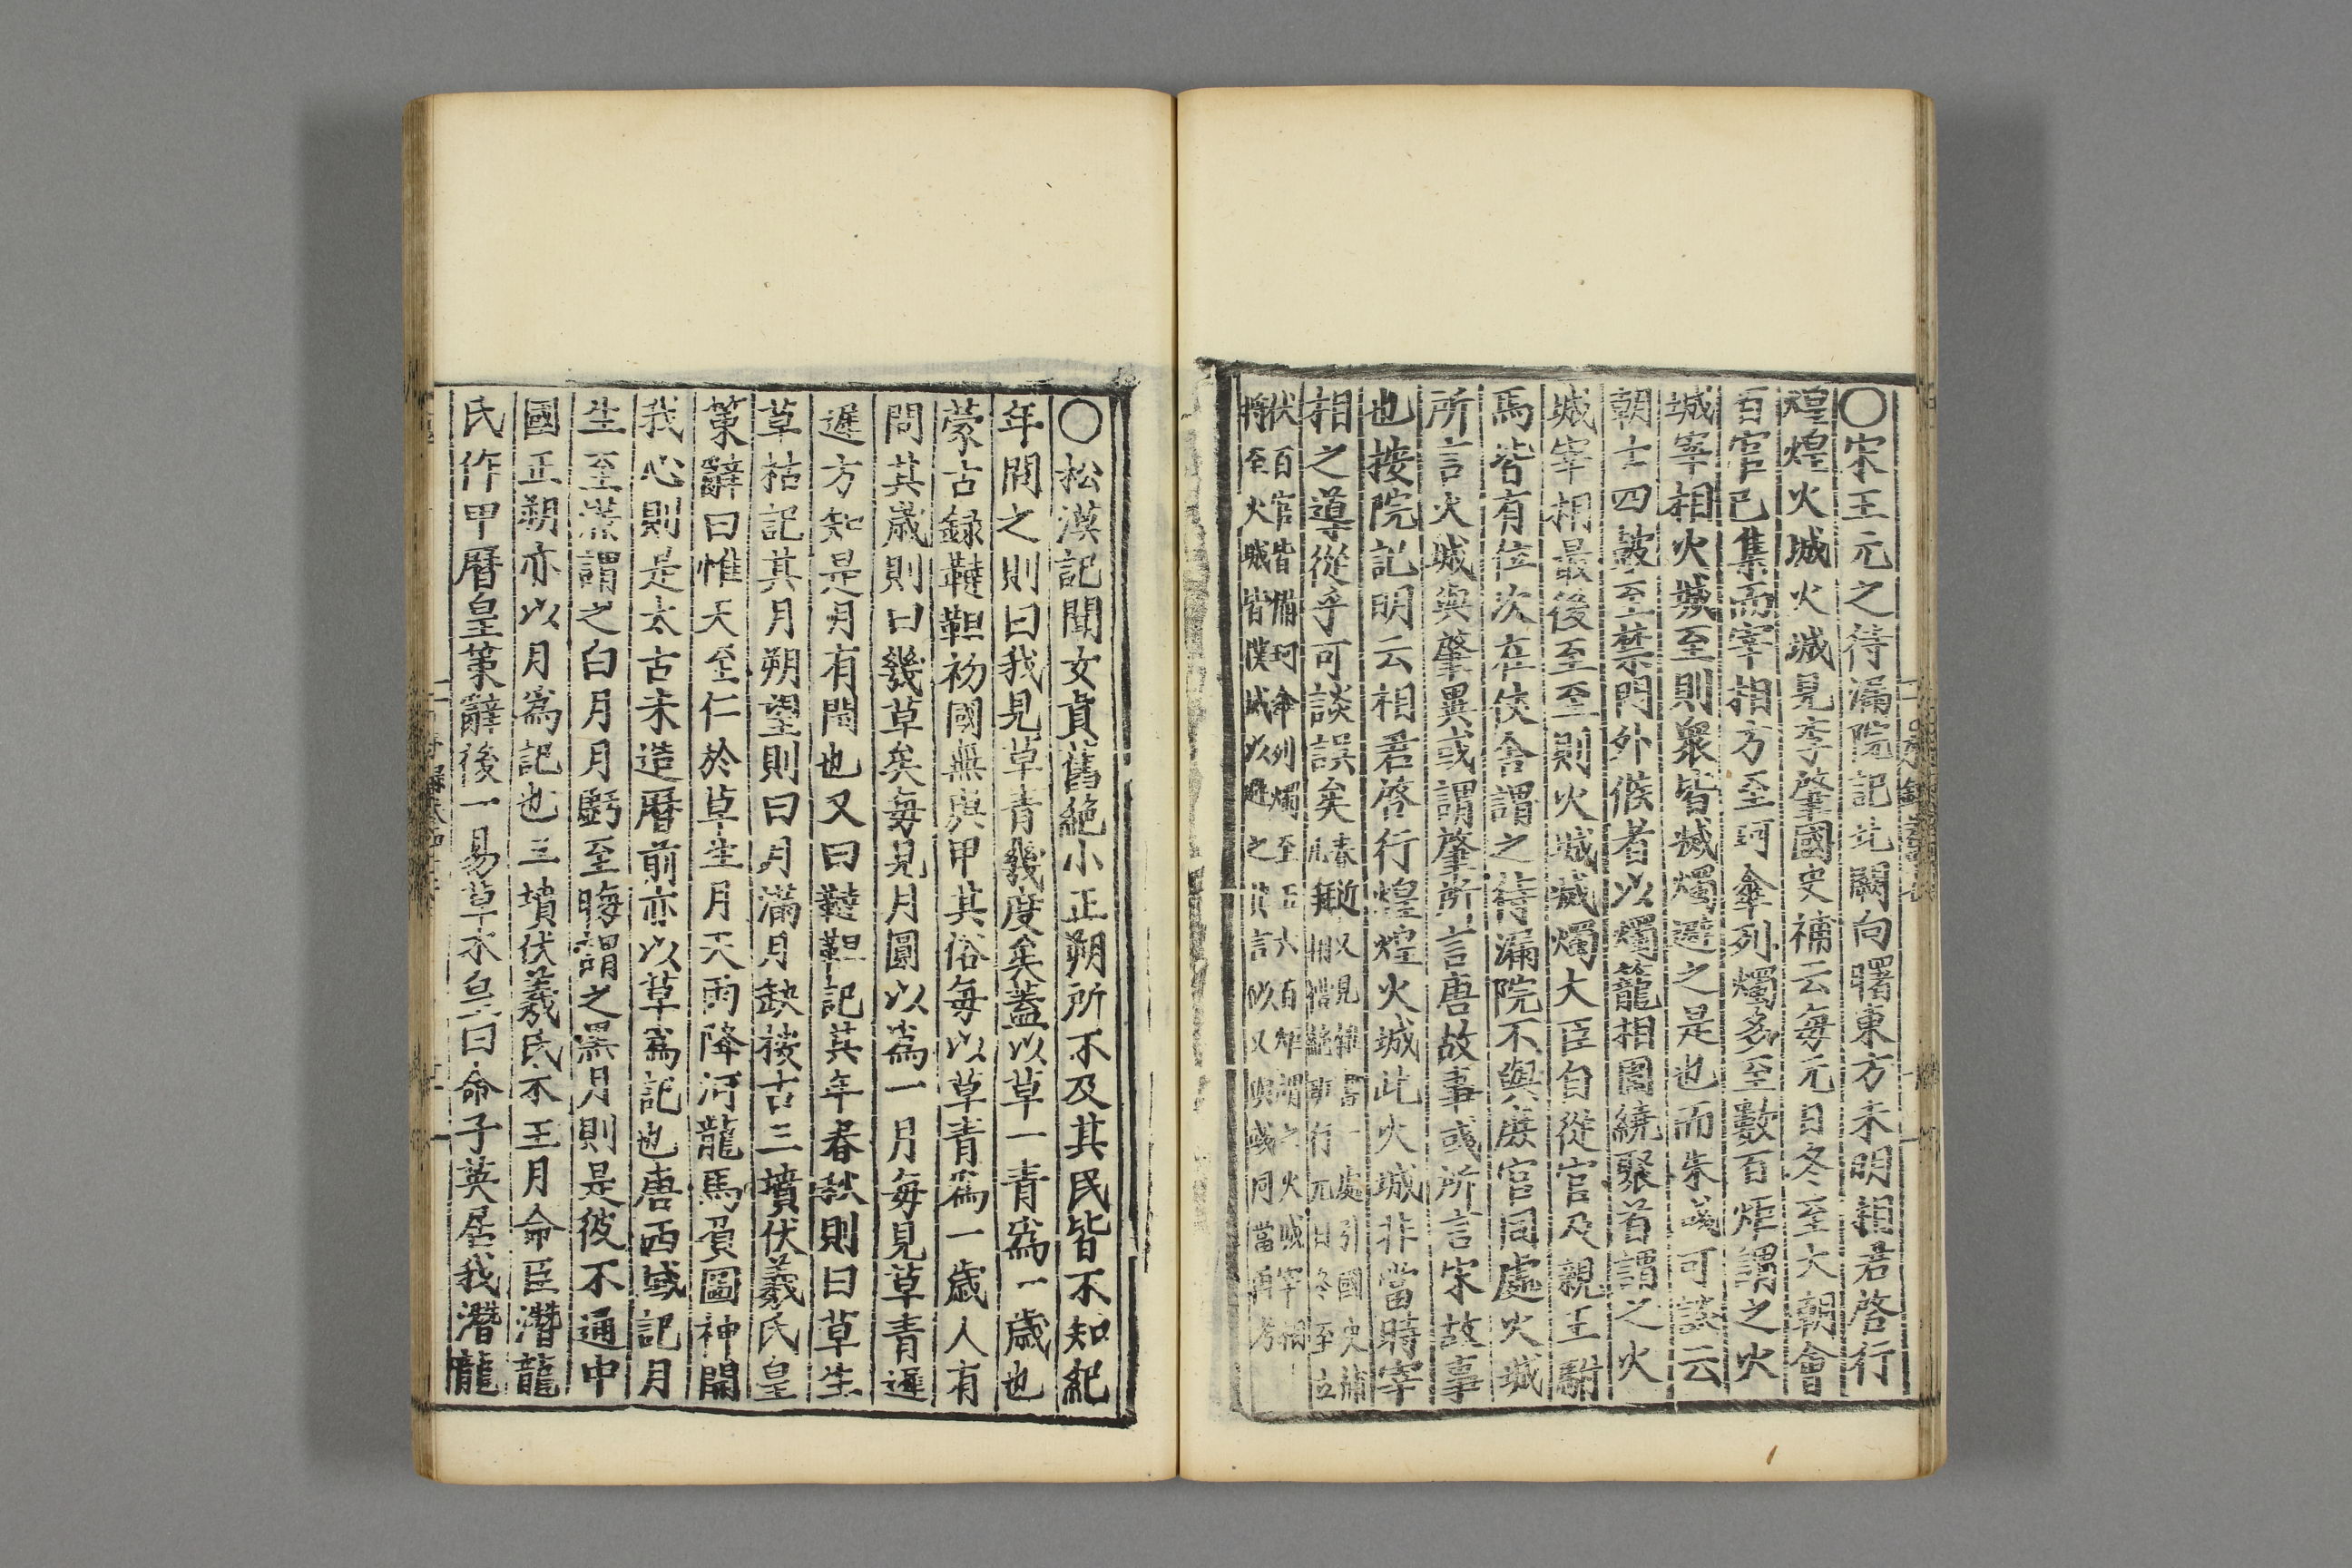 〇宋王元之待漏院記北闕向曙東方未明相君啓行
煌煌火城火城見李肇國史補云每元日冬至大朝會
百官已集而宰相方至珂傘列燭多至數百炬謂之火
城宰相火城至則衆皆滅燭避之是也而朱彧可談云
朝士四鼓至禁門外候者以燭籠相圍繞聚首謂之火
城宰相最後至至則火城滅燭大臣自從官及親王駙
馬皆有位次在佼舍謂之待漏院不與庻官同處火城
所言火城與肇異或謂肇所言唐故事彧所言宋故事
也按院記明云相君啓行煌煌火城此火城非當時宰
相之導從乎可談誤矣
春近又見稗書一處引國史補
凡拜相禮絶班行元日冬至立
伏百官皆備珂傘列燭至五六百炬謂之火城宰相
將至火城皆撲滅以避之其言似又與彧同當再考
〇松漠記聞女貞舊絶小正朔所不及其民皆不知紀
年問之則曰我見草青幾度矣蓋以草一青爲一歲也
蒙古録韃靼初國無與甲其俗每以草青爲一歲人有
問其歲則曰幾草矣每見月圓以爲一月每見草青遲
遲方知是月有閏也又曰韃靼記其年春秋則曰草生
草枯記其月朔望則曰月滿月缺按古三墳伏羲氏皇
策辭曰惟天至仁於草生月天雨降河龍馬負圖神開
我心則是太古未造曆前亦以草爲記也唐西域記月
生至滿謂之白月月虧至晦謂之黑月則是彼不通中
國正朔亦以月爲記也三墳伏羲氏木王月命臣潛龍
氏作甲曆皇策辭後一易草木皇曰命子英居我潛龍